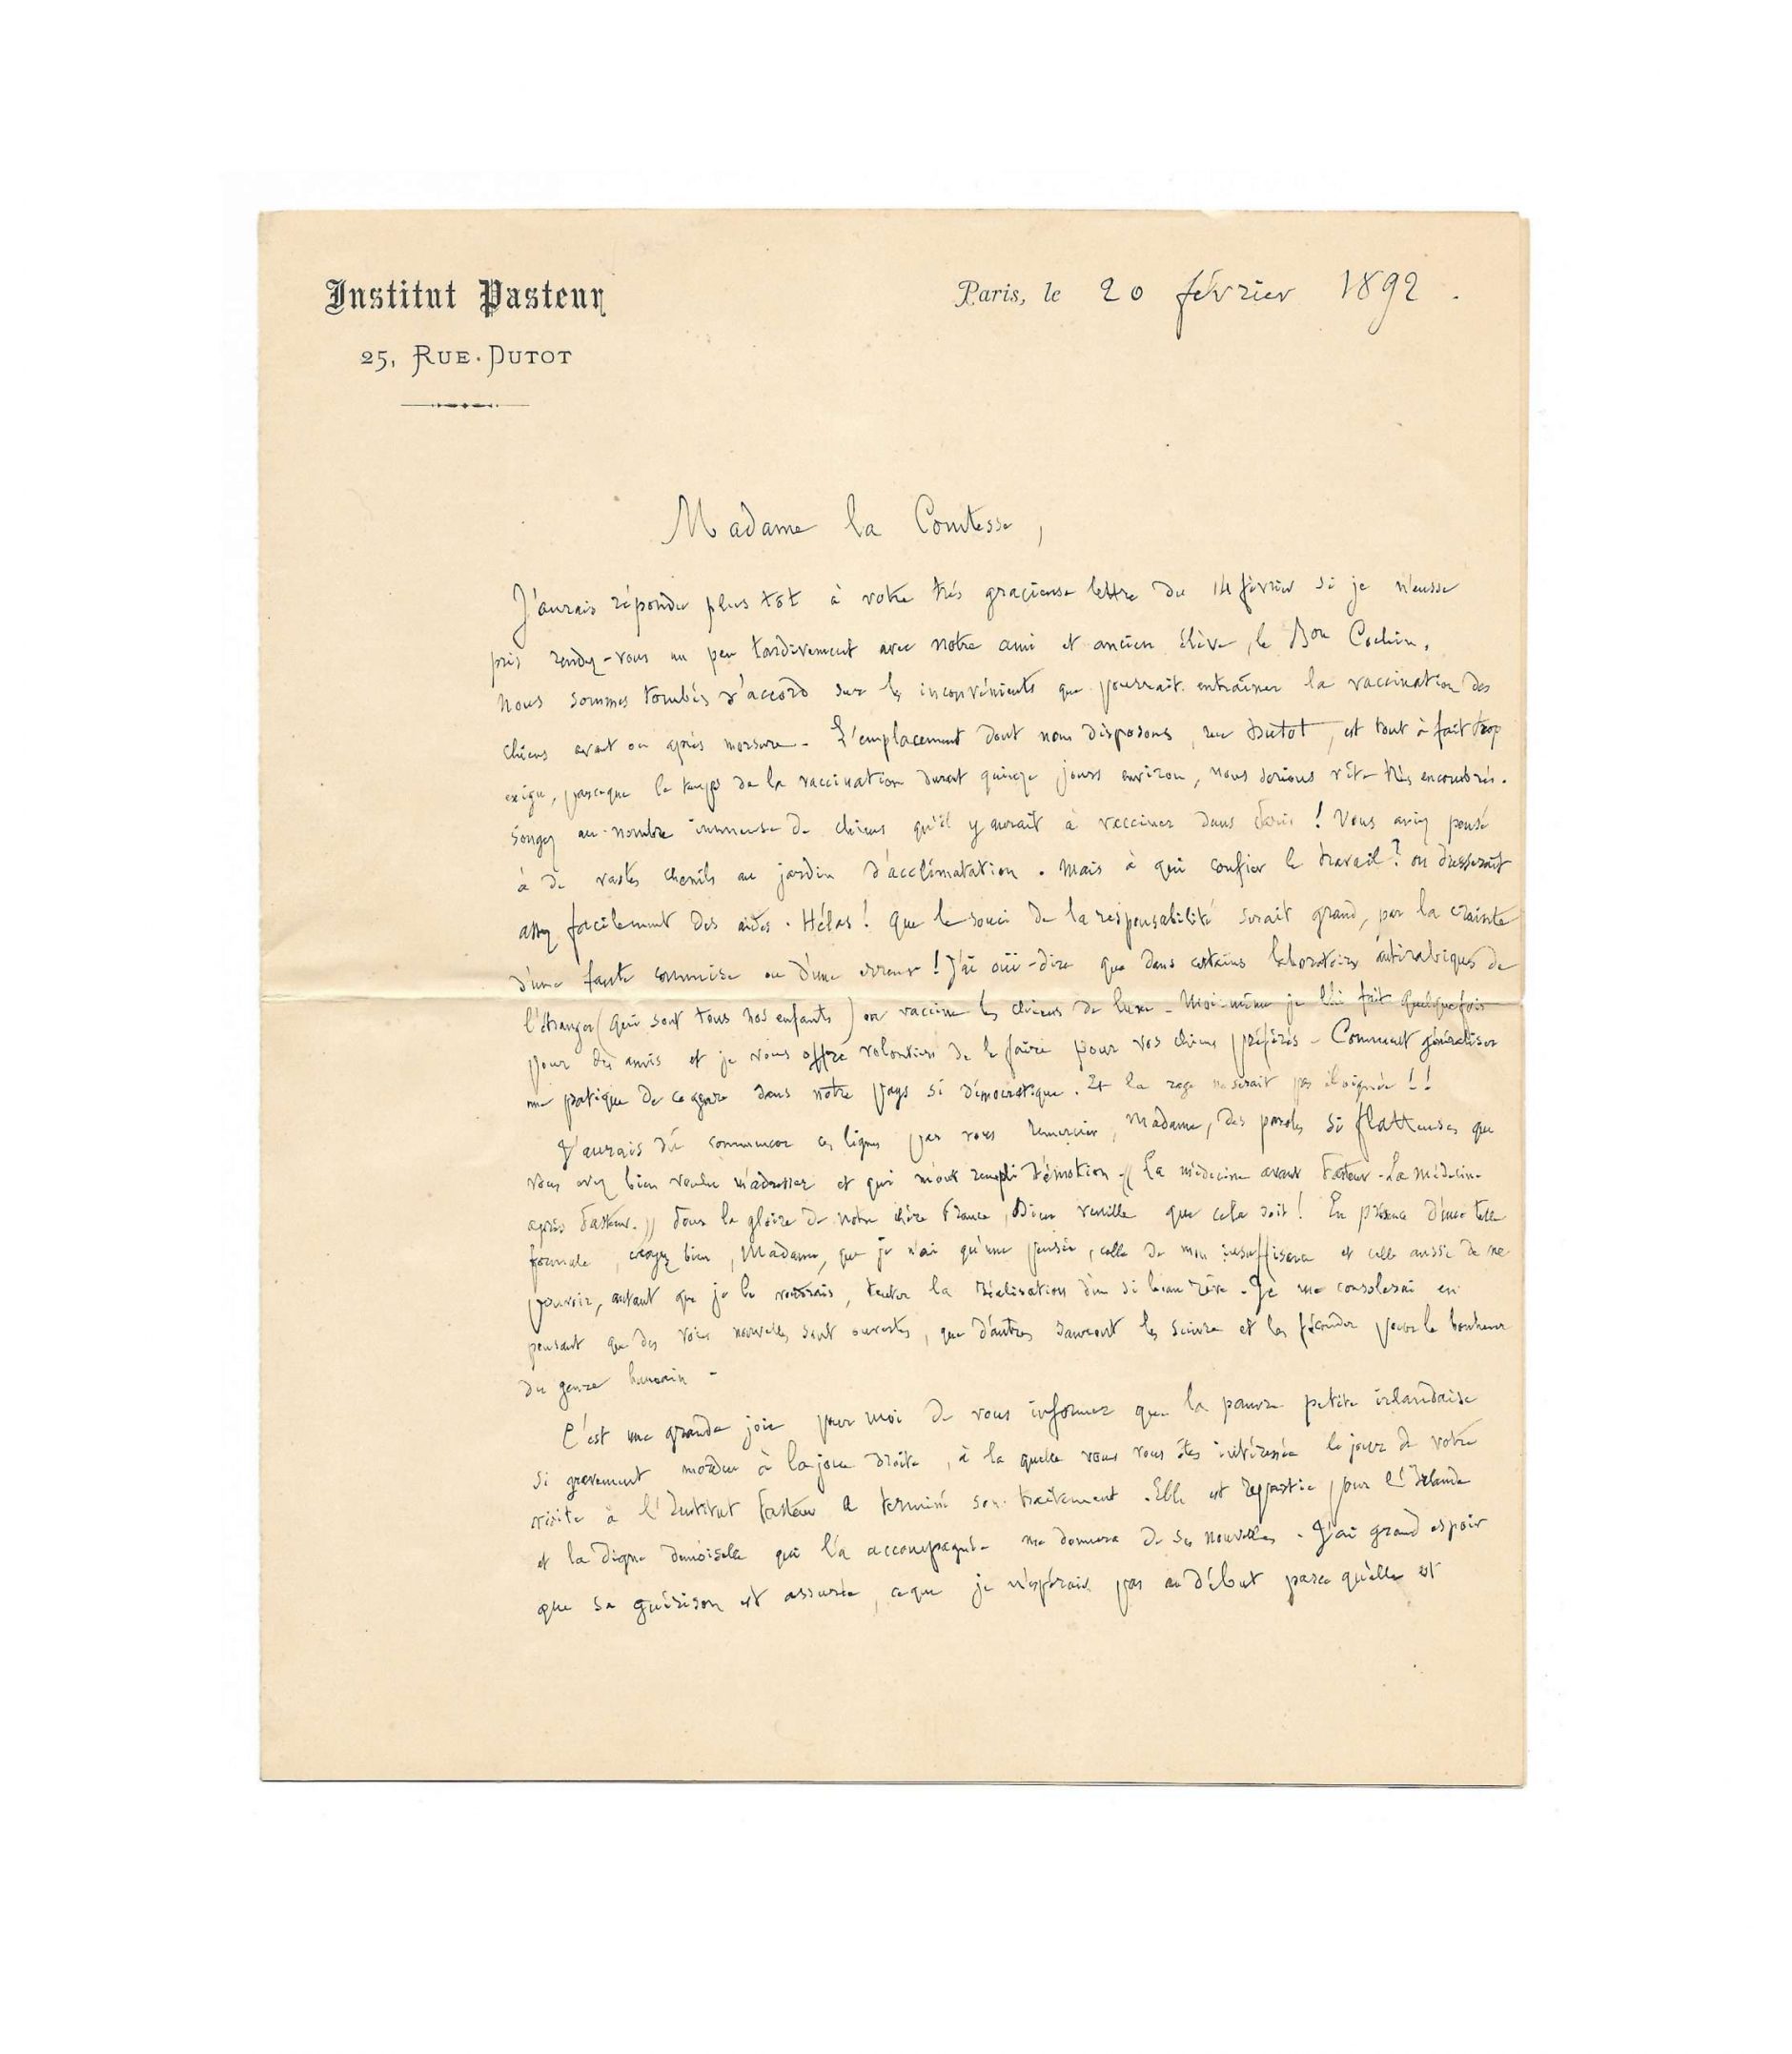 Institut Pasteur
25, RUE DUTOT
Paris, le 20 février 1892.
Madame la Comtesse,
J'aurais répondu plus tôt à votre très gracieuse lettre du 14 février si je n'eusse
pris rendez-vous un peu tardivement avec notre ami et ancien élève, le Bon Cochin.
Nous sommes tombés d'accord sur les inconvénients que pourrait entraîner la vaccination des
chiens avant ou après morsure - L'emplacement dont nous disposons, rue Dutot, est tout à fait trop
exigu, parceque le temps de la vaccination durant quinze jours environ, nous serions vite très encombrés.
Songez au nombre immense de chiens qu'il y aurait à vacciner dans Paris ! Vous aviez pensé
à de vastes chenils au jardin d'acclimatation. Mais à qui confier le travail ? on dresserait
assez facilement des aides. Hélas ! que le souci de la responsabilité serait grand, par la crainte
d'une faute commise ou d'une erreur ! J'ai ouï-dire que dans certains laboratoires antirabiques de
l'étranger (qui sont tous nos enfants) on vaccine les chiens de luxe - Moi-même je l'ai fait quelquefois
pour des amis et je vous offre volontiers de le faire pour vos chiens préférés - Comment généraliser
une pratique de ce genre dans notre pays si démocratique. Et la rage ne serait pas éloignée !!
J'aurais dû commencer ces lignes par vous remercier, Madame, des paroles si flatteuses que
vous avez bien voulu m'adresser et qui m'ont rempli d'émotion « La médecine avant Pasteur - La médecine
après Pasteur. » Pour la gloire de notre chère France, Dieu veuille que cela soit ! En présence d'une telle
formule, croyez bien, Madame, que je n'ai qu'une pensée, celle de mon insuffisance et celle aussi de ne
pouvoir, autant que je le voudrais, tenter la réalisation d'un si beau rêve - Je me consolerai en
pensant que des voies nouvelles sont ouvertes, que d'autres sauront les suivre et les féconder pour le bonheur
du genre humain -
C'est une grande joie pour moi de vous informer que la pauvre petite irlandaise
si gravement mordue à la joue droite, à la quelle vous vous êtes intéressée le jour de votre
visite à l'Institut Pasteur a terminé son traitement. Elle est repartie pour l'Irlande
et la digne demoiselle qui l'a accompagnée me donnera de ses nouvelles. J'ai grand espoir
que sa guérison est assurée, ce que je n'espérais pas au début parce qu'elle est